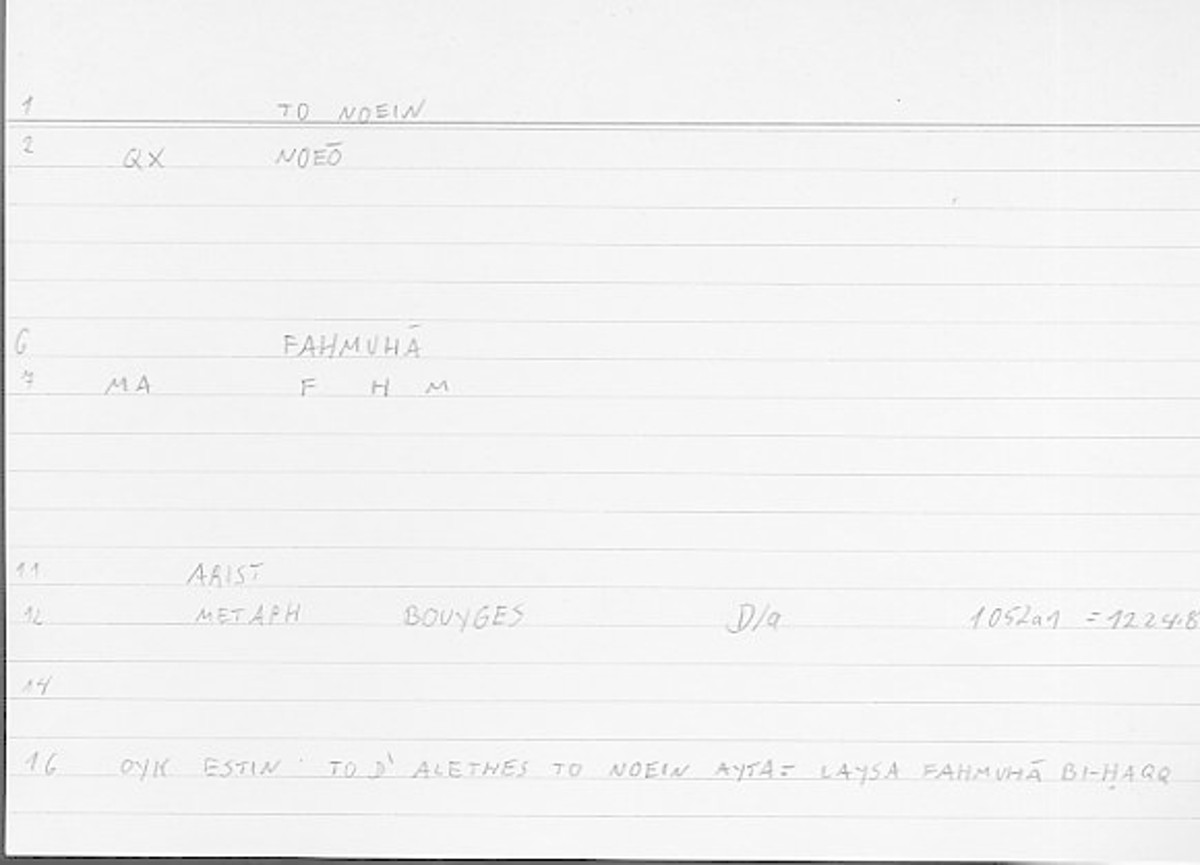 1 TO NOEIN
2 QX NOEŌ
6 FAHMUHĀ
7 MA F H M
11 ARIST
12 METAPH BOUYGES D/a 1052a1 = 1224.8
14
16 OYK ESTIN · TO D' ALETHES TO NOEIN AYTA = LAYSA FAHMUHĀ BI-ḤAQQ